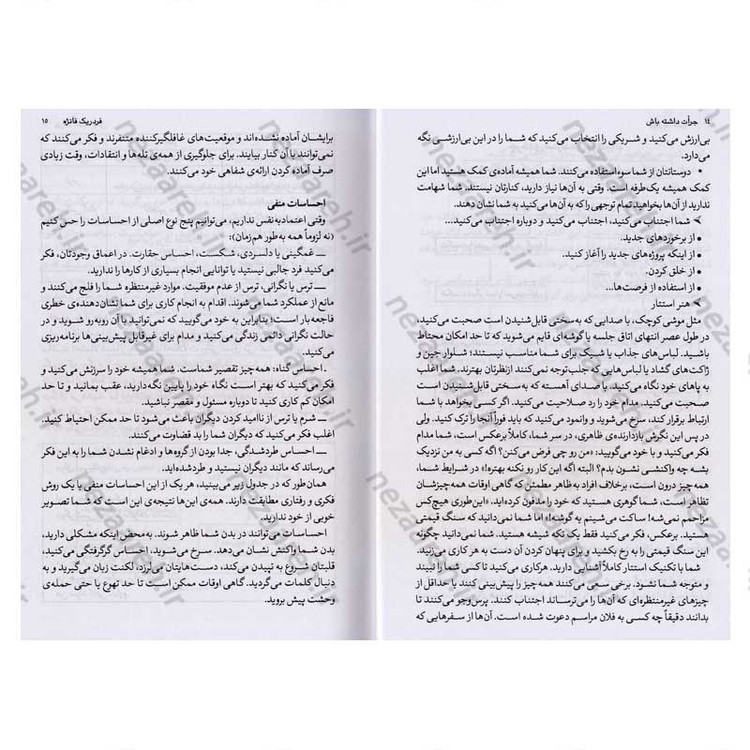 ۱۴ جرأت داشته باش
بی‌ارزش می‌کنید و شریکی را انتخاب می‌کنید که شما را در این بی‌ارزشی نگه
می‌دارد.
• دوستانتان از شما سوء استفاده می‌کنند. شما همیشه آماده‌ی کمک هستید اما این
کمک همیشه یک‌طرفه است. وقتی به آن‌ها نیاز دارید، کنارتان نیستند. شما شهامت
ندارید از آن‌ها بخواهید تمام توجهی را که به آن‌ها می‌کنید به شما نشان دهند.
➤ شما اجتناب می‌کنید، اجتناب می‌کنید و دوباره اجتناب می‌کنید...
• از برخوردهای جدید.
• از اینکه پروژه‌های جدید را آغاز کنید.
• از خلق کردن.
• از استفاده از فرصت‌ها...
➤ هنر استتار
مثل موشی کوچک، با صدایی که به‌سختی قابل‌شنیدن است صحبت می‌کنید،
در طول عصر انتهای اتاق جلسه یا گوشه‌ای قایم می‌شوید که تا حد امکان محتاط
باشید. لباس‌های جذاب یا شیک برای شما مناسب نیستند؛ شلوار جین و
ژاکت‌های گشاد یا لباس‌هایی که جلب‌توجه نمی‌کنند ازنظرتان بهترند. شما اغلب
به پاهای خود نگاه می‌کنید. با صدای آهسته که به‌سختی قابل‌شنیدن است
صحبت می‌کنید. مدام خود را رد صلاحیت می‌کنید. اگر کسی بخواهد با شما
ارتباط برقرار کند، سرخ می‌شوید و وانمود می‌کنید که باید فوراً آنجا را ترک کنید. ولی
در پس این نگرش بازدارنده‌ی ظاهری، در سر شما، کاملاً برعکس است، شما مدام
فکر می‌کنید و با خود می‌گویید: «من رو چی فرض می‌کنن؟ اگه کسی به من نزدیک
بشه چه واکنشی نشون بدم؟ البته اگه این کار رو نکنه بهتره!» در شرایط شما،
همه‌چیز درون است، برخلاف افراد به ظاهر مطمئن که گاهی اوقات همه‌چیزشان
تظاهر است، شما گوهری هستید که خود را مدفون کرده‌اید. «این‌طوری هیچ‌کس
مزاحمم نمی‌شه! ساکت می‌شینم یه گوشه!» اما شما نمی‌دانید که سنگ قیمتی
هستید. برعکس، فکر می‌کنید فقط یک تکه شیشه هستید. شما نمی‌دانید چگونه
این سنگ قیمتی را به رخ بکشید و برای پنهان کردن آن دست به هر کاری می‌زنید.
شما با تکنیک استتار کاملاً آشنایی دارید. هرکاری می‌کنید تا کسی شما را نبیند
و متوجه شما نشود. برخی سعی می‌کنند همه چیز را پیش‌بینی کنند یا حداقل از
چیزهای غیرمنتظره‌ای که آن‌ها را می‌ترساند اجتناب کنند. پرس‌وجو می‌کنند تا
بدانند دقیقاً چه کسی به فلان مراسم دعوت شده است. آن‌ها از سفرهایی که
فردریک فانژه ۱۵
برایشان آماده نشده‌اند و موقعیت‌های غافلگیرکننده متنفرند و فکر می‌کنند که
نمی‌توانند با آن کنار بیایند. برای جلوگیری از همه‌ی تله‌ها و انتقادات، وقت زیادی
صرف آماده کردن ارائه‌ی شفاهی خود می‌کنند.
احساسات منفی
وقتی اعتمادبه‌نفس نداریم، می‌توانیم پنج نوع اصلی از احساسات را حس کنیم
(نه لزوماً همه به‌طور هم‌زمان):
ـــ غمگینی یا دلسردی، شکست، احساس حقارت. در اعماق وجودتان، فکر
می‌کنید فرد جالبی نیستید یا توانایی انجام بسیاری از کارها را ندارید.
ـــ ترس یا نگرانی، ترس از عدم موفقیت. موارد غیرمنتظره شما را فلج می‌کنند و
مانع از عملکرد شما می‌شوند. اقدام به انجام کاری برای شما نشان‌دهنده‌ی خطری
فاجعه‌بار است؛ بنابراین به خود می‌گویید که نمی‌توانید با آن روبه‌رو شوید و در
حالت نگرانی دائمی زندگی می‌کنید و مدام برای غیرقابل پیش‌بینی‌ها برنامه‌ریزی
می‌کنید.
ـ احساس گناه: همه‌چیز تقصیر شماست. شما همیشه خود را سرزنش می‌کنید و
فکر می‌کنید که بهتر است نگاه خود را پایین نگه‌دارید، عقب بمانید و تا حد
امکان کم کاری کنید تا دوباره مسئول و مقصر نباشید.
ـــ شرم یا ترس از ناامید کردن دیگران باعث می‌شود تا حد ممکن احتیاط کنید.
اغلب فکر می‌کنید که دیگران شما را بد قضاوت می‌کنند.
ـــ احساس طردشدگی، جدا بودن از گروه‌ها و ادغام نشدن شما را به این فکر
می‌رساند که مانند دیگران نیستید و طردشده‌اید.
همان‌طور که در جدول زیر می‌بینید، هر یک از این احساسات منفی با یک روش
فکری و رفتاری مطابقت دارند. همه‌ی این‌ها نتیجه‌ی این است که شما تصویر
خوبی از خود ندارید.
احساسات می‌توانند در بدن شما ظاهر شوند. به‌محض اینکه مشکلی دارید،
بدن شما واکنش نشان می‌دهد. سرخ می‌شوید، احساس گرگرفتگی می‌کنید،
قلبتان شروع به تپیدن می‌کند، دست‌هایتان می‌لرزد، لکنت زبان می‌گیرید و به
دنبال کلمات می‌گردید. گاهی اوقات ممکن است تا حد تهوع یا حتی حمله‌ی
وحشت پیش بروید.
nezaareh.ir